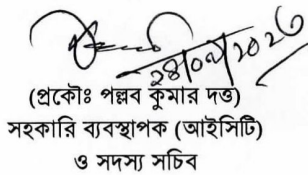 (প্রকৌঃ পল্লব কুমার দত্ত)
সহকারি ব্যবস্থাপক (আইসিটি)
ও সদস্য সচিব